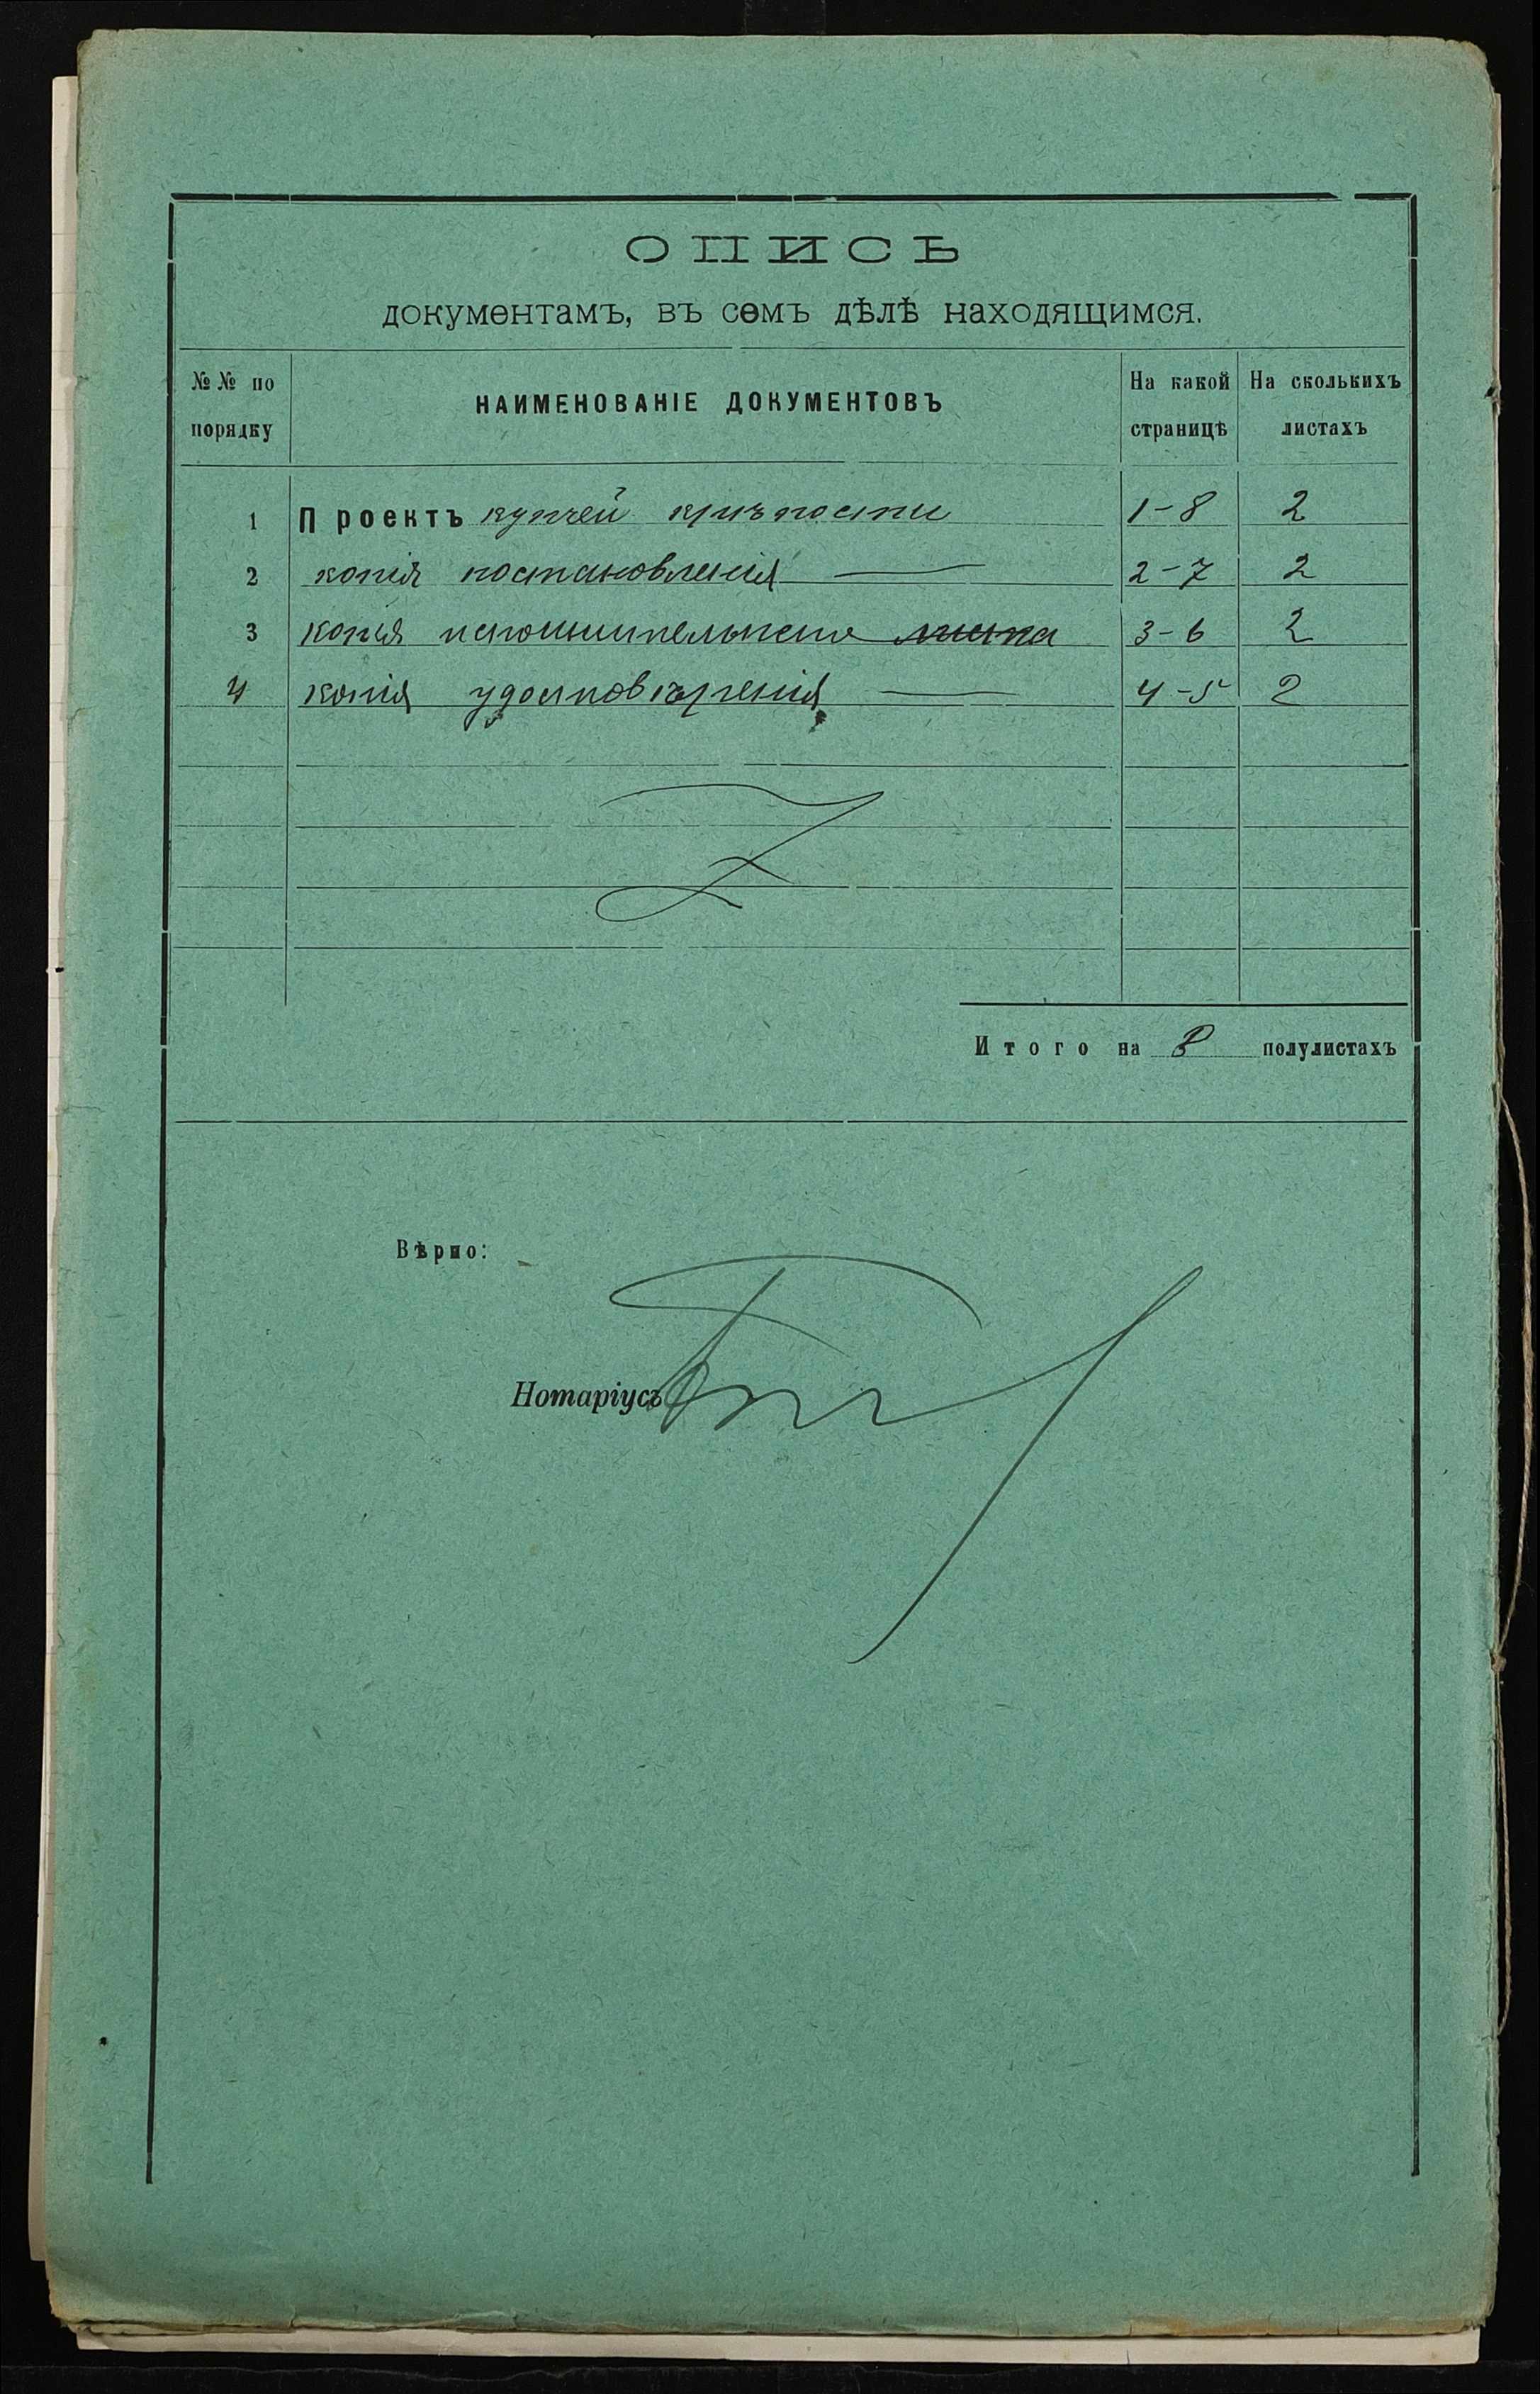 ОПИСЬ
документамъ, въ семъ дѣлѣ находящимся.
№№ по порядку
НАИМЕНОВАНІЕ ДОКУМЕНТОВЪ
На какой страницѣ
На сколькихъ листахъ
1 Проектъ купчей крѣпости 1-8 2
2 копія постановленія 2-7 2
3 копія исполнительнаго листа 3-6 2
4 копія удостовѣренія 4-5 2
Итого на 8 полулистахъ
Вѣрно:
Нотаріусъ